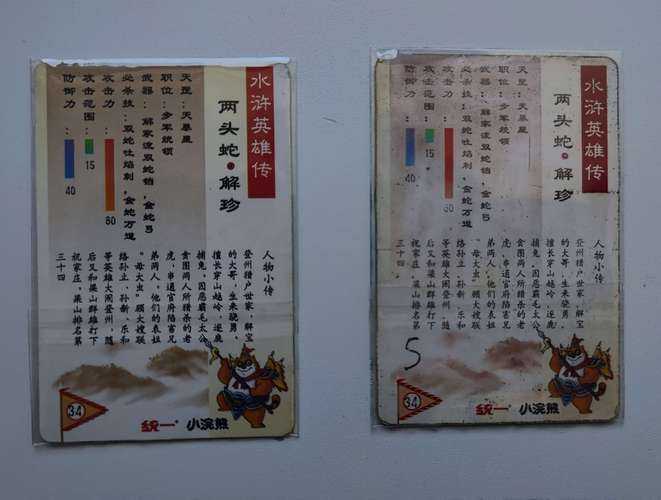 水浒英雄传
两头蛇·解珍
天罡:天暴星
职位:步军统领
武器:解家浪双蛇镋,金蛇弓
必杀技:双蛇吐焰刺,金蛇万道
攻击力:
80
攻击范围:
15
防御力:
40
人物小传
登州猎户世家,解宝
的大哥,生来骁勇,
擅长穿山越岭,逐鹿
捕兔,因恶霸毛太公
贪图两人所猎杀的老
虎,串通官府陷害兄
弟两人,他们的表姐
"母大虫"顾大嫂联
络孙立、孙新、乐和
等英雄大闹登州,随
后又和梁山群雄打下
祝家庄,梁山排名第
三十四
34
统一 小浣熊
水浒英雄传
两头蛇·解珍
天罡:天暴星
职位:步军统领
武器:解家浪双蛇镋,金蛇弓
必杀技:双蛇吐焰刺,金蛇万道
攻击力:
80
攻击范围:
15
防御力:
40
人物小传
登州猎户世家,解宝
的大哥,生来骁勇,
擅长穿山越岭,逐鹿
捕兔,因恶霸毛太公
贪图两人所猎杀的老
虎,串通官府陷害兄
弟两人,他们的表姐
"母大虫"顾大嫂联
络孙立、孙新、乐和
等英雄大闹登州,随
后又和梁山群雄打下
祝家庄,梁山排名第
三十四
5
34
统一 小浣熊